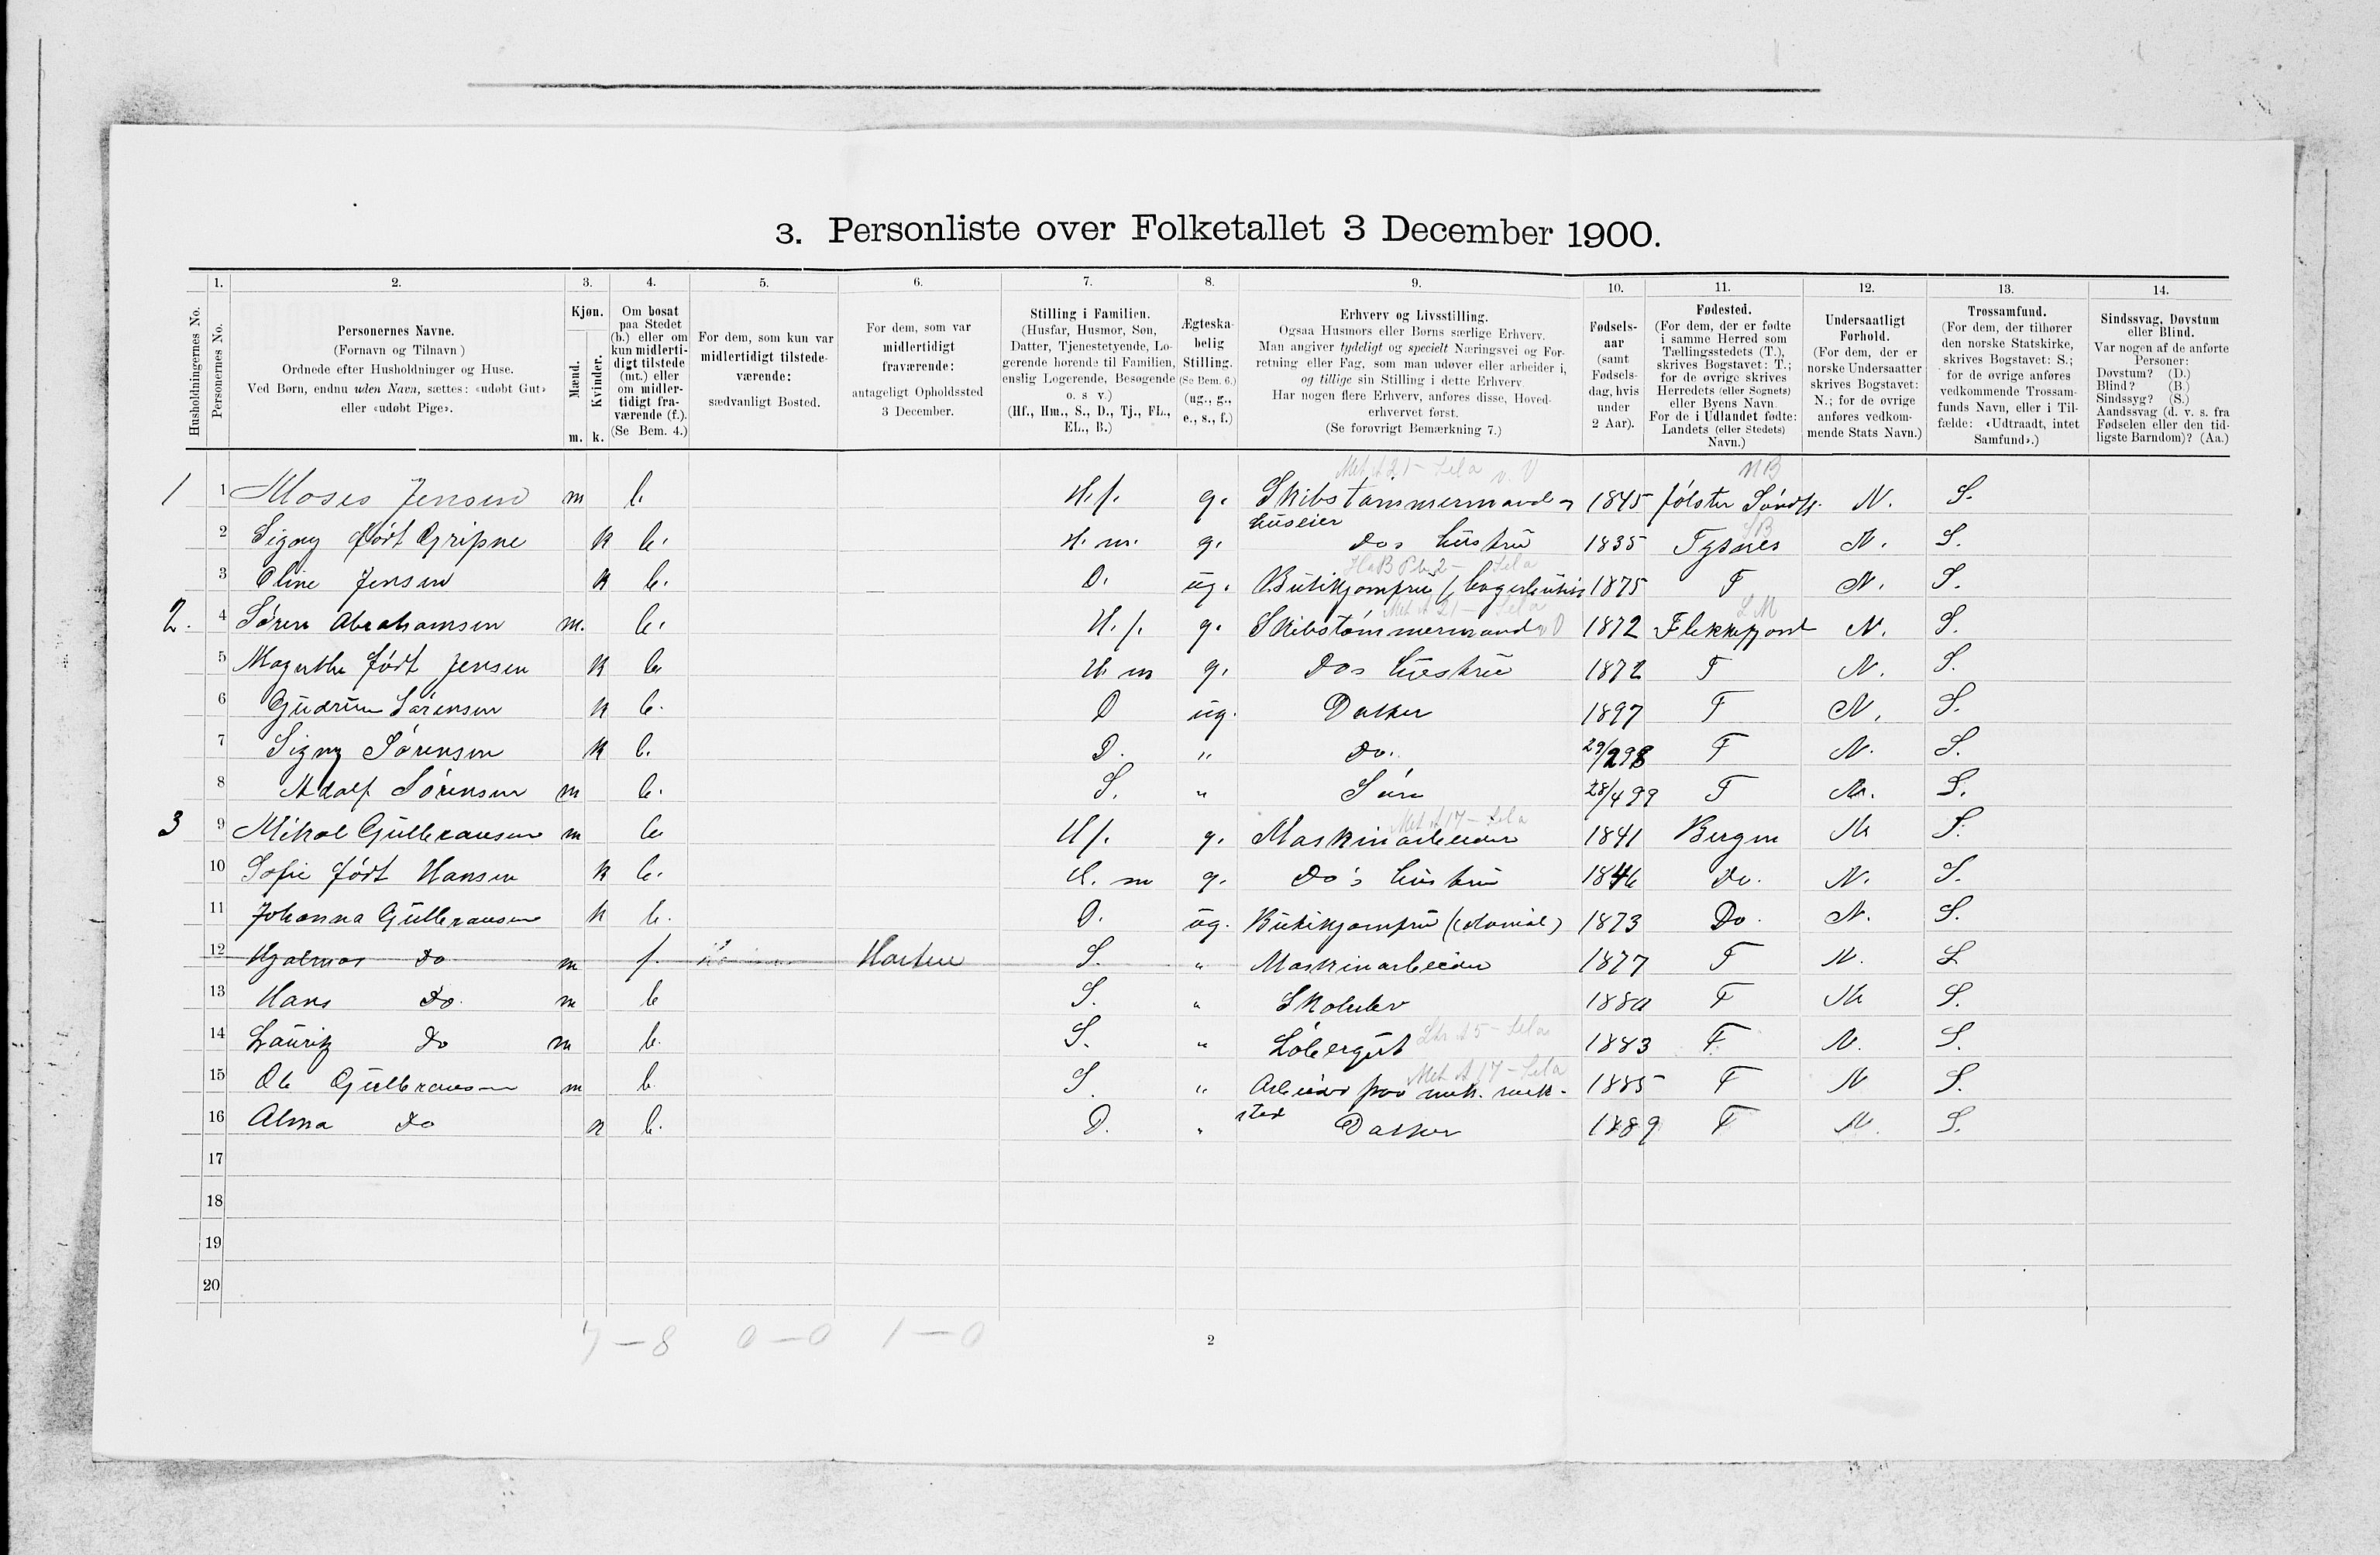 3. Personliste over Folketallet 3 December 1900.
1. 2. 3. 4. 5. 6. 7. 8. 9. 10. 11. 12. 13. 14.
Husholdningernes No.
Personernes No.
Personernes Navne.
(Fornavn og Tilnavn)
Ordnede efter Husholdninger og Huse.
Ved Børn, endnu uden Navn, sættes: «udøbt Gut»
eller «udøbt Pige».
Kjøn.
Mænd.
Kvinder.
m. k.
Om bosat
paa Stedet
(b.) eller om
kun midlerti-
digt tilstede
(mt.) eller
om midler-
tidigt fra-
værende (f.).
(Se Bem. 4.)
For dem, som kun var
midlertidigt tilstede-
værende:
sædvanligt Bosted.
For dem, som var
midlertidigt
fraværende:
antageligt Opholdssted
3 December.
Stilling i Familien.
(Husfar, Husmor, Søn,
Datter, Tjenestetyende, Lo-
gerende hørende til Familien,
enslig Logerende, Besøgende
o. s v.)
(Hf., Hm., S., D., Tj., FL.,
EL., B.)
Ægteska-
belig
Stilling.
(Se Bem. 6.)
(ug., g.,
e., s., f.)
Erhverv og Livsstilling.
Ogsaa Husmors eller Børns særlige Erhverv.
Man angiver tydeligt og specielt Næringsvei og For-
retning eller Fag, som man udøver eller arbeider i,
og tillige sin Stilling i dette Erhverv.
Har nogen flere Erhverv, anføres disse, Hoved-
erhvervet først.
(Se forøvrigt Bemærkning 7.)
Fødsels-
aar
(samt
Fødsels-
dag, hvis
under
2 Aar).
Fødested.
(For dem, der er fødte
i samme Herred som
Tællingsstedets (T.),
skrives Bogstavet: T.;
for de øvrige skrives
Herredets (eller Sognets)
eller Byens Navn
For de i Udlandet fødte:
Landets (eller Stedets)
Navn.)
Undersaatligt
Forhold.
(For dem, der er
norske Undersaatter
skrives Bogstavet:
N.; for de øvrige
anføres vedkom-
mende Stats Navn.)
Trossamfund.
(For dem, der tilhører
den norske Statskirke,
skrives Bogstavet: S.;
for de øvrige anføres
vedkommende Trossam-
funds Navn, eller i Til-
fælde: «Udtraadt, intet
Samfund».)
Sindssvag, Døvstum
eller Blind.
Var nogen af de anførte
Personer:
Døvstum? (D.)
Blind? (B.)
Sindssyg? (S.)
Aandssvag (d. v. s. fra
Fødselen eller den tid-
ligste Barndom)? (Aa.)
1 1 Moses Jensen m b. H.f. g. Skibstømmermand 1845 Jølster Søndfj. N. S.
huseier
2 Signy født Gripne k b. H.m. g. Dos hustru 1835 Tysnes N. S.
3 Oline Jensen k b. D. ug. Butikjomfru 1875 T N. S.
2. 4 Søren Abrahamsen m. b. H.f. g. Skibstømmermand 1872 Flekkefjord N. S.
5 Magnthe født Jensen k b. H. m g. Dos hustru 1872 T N. S.
6 Gudrun Sørensen k b. D ug. Datter 1897 T N. S.
7 Signy Sørensen k b. D. " Do. 29/298 T N. S.
8 Adolf Sørensen m b. S. " Søn 28/499 T N. S.
3 9 Mikal Gulbransen m b. Hf. g. Maskinarbeider 1841 Bergen N S.
10 Sofie født Hansen k b. H. m g. Do's hustru 1846 Do. N. S.
11 Johanna Gulbransen k b. D. ug. Butikjomfru (colonial) 1873 Do. N. S.
12 Hjalmar Do m f. Horten S. " Maskinarbeider 1877 T N. S
13 Hans Do. m b S. " Skoleelev 1880 T N S.
14 Lauritz Do m b. S. " Løbergut 1883 T N. S.
15 Ole Gulbransen m b. S. " Arbeider paa mek. verk- 1885 T N S.
sted
16 Alma Do k b. D. " Datter 1889 T N. S.
17
18
19
20
7 — 8 0 — 0 1 — 0
2